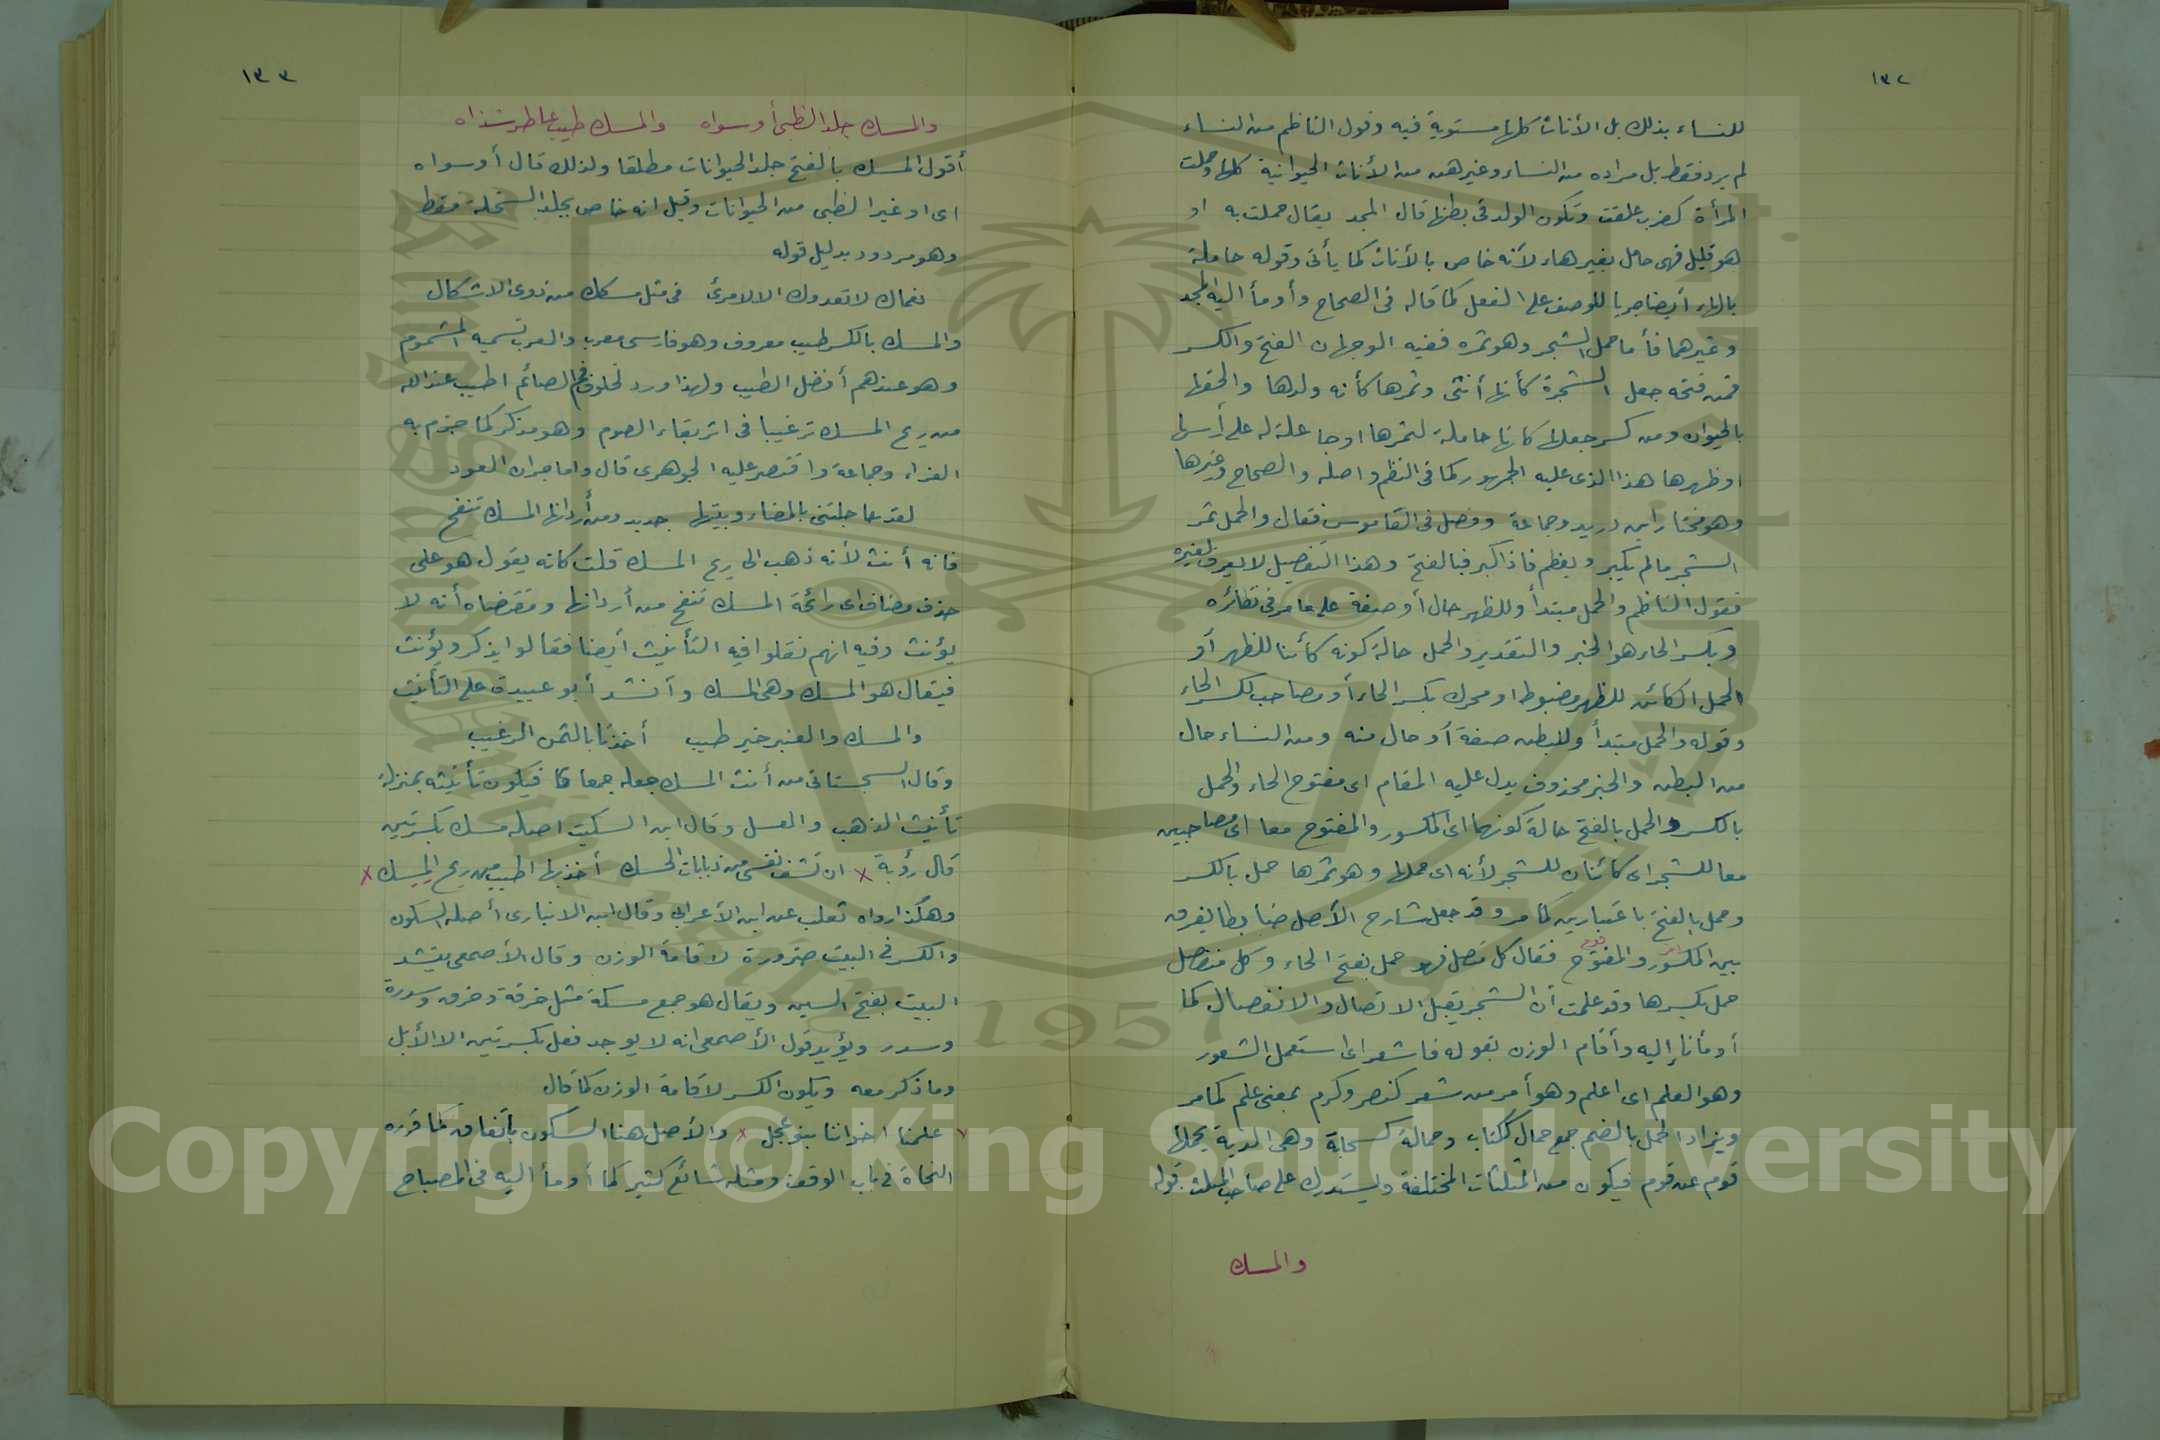 ١٣٢
للنساء بذلك بل الأناث كلها مستوية فيه وقول الناظم من النساء
لم يرد فقط بل مراده من النساء وغيرهن من الأناث الحيوانية كلها وحملت
المرأة كضرب علقت وتكون الولد فى بطنها قال المجد يقال حملت به او
هو قليل فهى حامل بغير هاء لأنه خاص بالأناث كما يأتى وقوله حاملة
بالهاء أيضا جريا للوصف على الفعل كما قاله فى الصحاح وأومأ اليه المجد
وغيرهما فأما حمل الشجر وهو ثمره ففيه الوجهان الفتح والكسر
فمن فتحه جعل الشجرة كأنها أنثى وثمرها كأنه ولدها والحقها
بالحيوان ومن كسر جعلها كانها حاملة لثمرها اوجاعلة له على رأسها
اوظهرها هذا الذى عليه الجمهور كما فى النظم واصله والصحاح وغيرها
وهو مختار ابن دريد وجماعة وفصل فى القاموس فقال والحمل ثمر
الشجر ما لم يكبر ويعظم فاذا كبر فبالفتح وهذا التفصيل لا يعرف لغيره
فقول الناظم والحمل مبتدأ وللظهر حال أو صفة على ما مر فى نظائره
وبكسر الحاء هو الخبر والتقدير والحمل حالة كونه كائنا للظهر أو
الحمل الكائن للظهر مضبوط او محرك بكسر الحاء أو مصاحب لكسر الحاء
وقوله والحمل مبتدأ وللبطن صفة أو حال منه ومن النساء حال
من البطن والخبر محذوف يدل عليه المقام اى مفتوح الحاء والحمل
بالكسر والحمل بالفتح حالة كونهما اى المكسور والمفتوح معا اى مصاحبين
معا للشجر اى كائنان للشجر لأنه اى حملها وهو ثمرها حمل بالكسر
وحمل بالفتح باعتبارين كما مر وقد جعل شارح الأصل ضابطا يفرق
بين المكسور والمفتوح فقال كل متصل فهو حمل بفتح الحاء وكل منفصل
حمل بكسرها وقد علمت أن الشجر يقبل الاتصال والانفصال كما
أومأنا إليه وأقام الوزن بقوله فاشعر اى استعمل الشعور
وهو العلم اى اعلم وهو أمر من شعر كنصر وكرم بمعنى علم كما مر
ويزاد الحمل بالضم جمع حمال ككتاب وحمالة كسحابة وهى الدية يحملها
قوم عن قوم فيكون من المثلثات المختلفة وليستدرك على صاحب المثلث قوله
والمسك
١٣٣
والمسك جلد الظبى أو سواه والمسك طيب عاطر شذاه
أقول المسك بالفتح جلد الحيوانات مطلقا ولذلك قال أو سواه
اى او غير الظبى من الحيوانات وقيل انه خاص بجلد السخلة فقط
وهو مردود بدليل قوله
نعماك لا تعدوك الا لامرئ فى مثل مسكك من ذوى الاشكال
والمسك بالكسر طيب معروف وهو فارسى معرب والعرب تسميه المشموم
وهو عندهم أفضل الطيب ولهذا ورد لخلوف فم الصائم اطيب عند الله
من ريح المسك ترغيبا فى اثر بقاء الصوم وهو مذكر كما جزم به
الفراء وجماعة واقتصر عليه الجوهرى قال واما جران العود
لقد عاجلتنى بالمضاء وبيتها جديد ومن أردانها المسك تنفح
فانه أنث لأنه ذهب الى ريح المسك قلت كانه يقول هو على
حذف مضاف اى رائحة المسك تنفح من أردانها ومقتضاه أنه لا
يؤنث وفيه انهم نقلوا فيه التأنيث أيضا فقالوا يذكر ويؤنث
فيقال هو المسك وهى المسك وأنشد أبو عبيدة على التأنيث
والمسك والعنبر خير طيب أخذتا بالثمن الرغيب
وقال السجستانى من أنث المسك جعله جمعا فيكون تأنيثه بمنزلة
تأنيث الذهب والعسل وقال ابن السكيت اصله مسك بكسرتين
قال رؤبة × ان تشف نفسى من ذبابات الحسك أخذ بها اطيب من ريح المسك ×
وهكذا رواه ثعلب عن ابن الأعرابى وقال ابن الانبارى أصله السكون
والكسر فى البيت ضرورة لاقامة الوزن وقال الأصمعى ينشد
البيت بفتح السين ويقال هو جمع مسكة مثل خرقة وخرق وسدرة
وسدر ويؤيد قول الأصمعى انه لا يوجد فعل بكسرتين الا الأبل
وما ذكر معه ويكون الكسر لاقامة الوزن كما قال
× علمنا اخواننا بنو عجل × والأصل هنا السكون باتفاق كما قرره
النحاة فى باب الوقف ومثله شائع كثير كما أومأ اليه فى المصباح
Copyright © King Saud University
1957